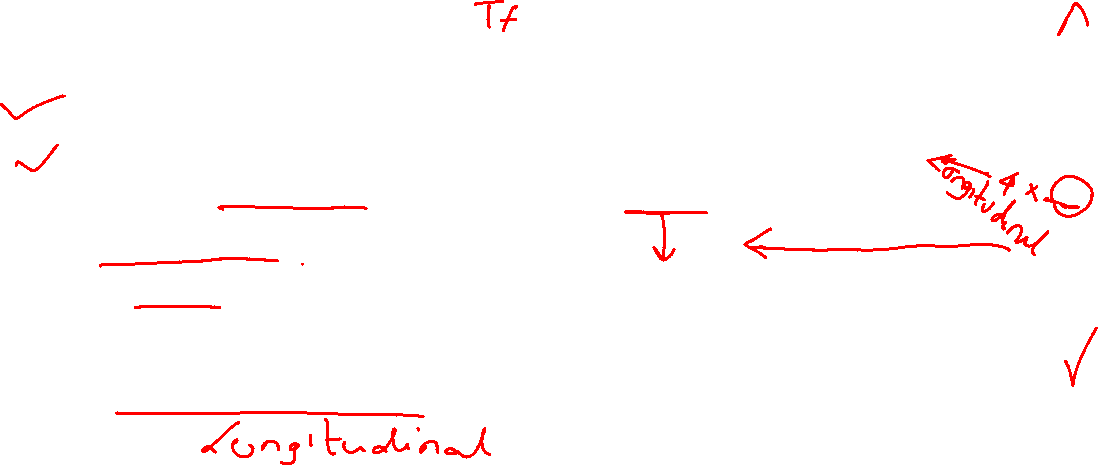 Tf
Longitudinal
4 x
Longitudinal